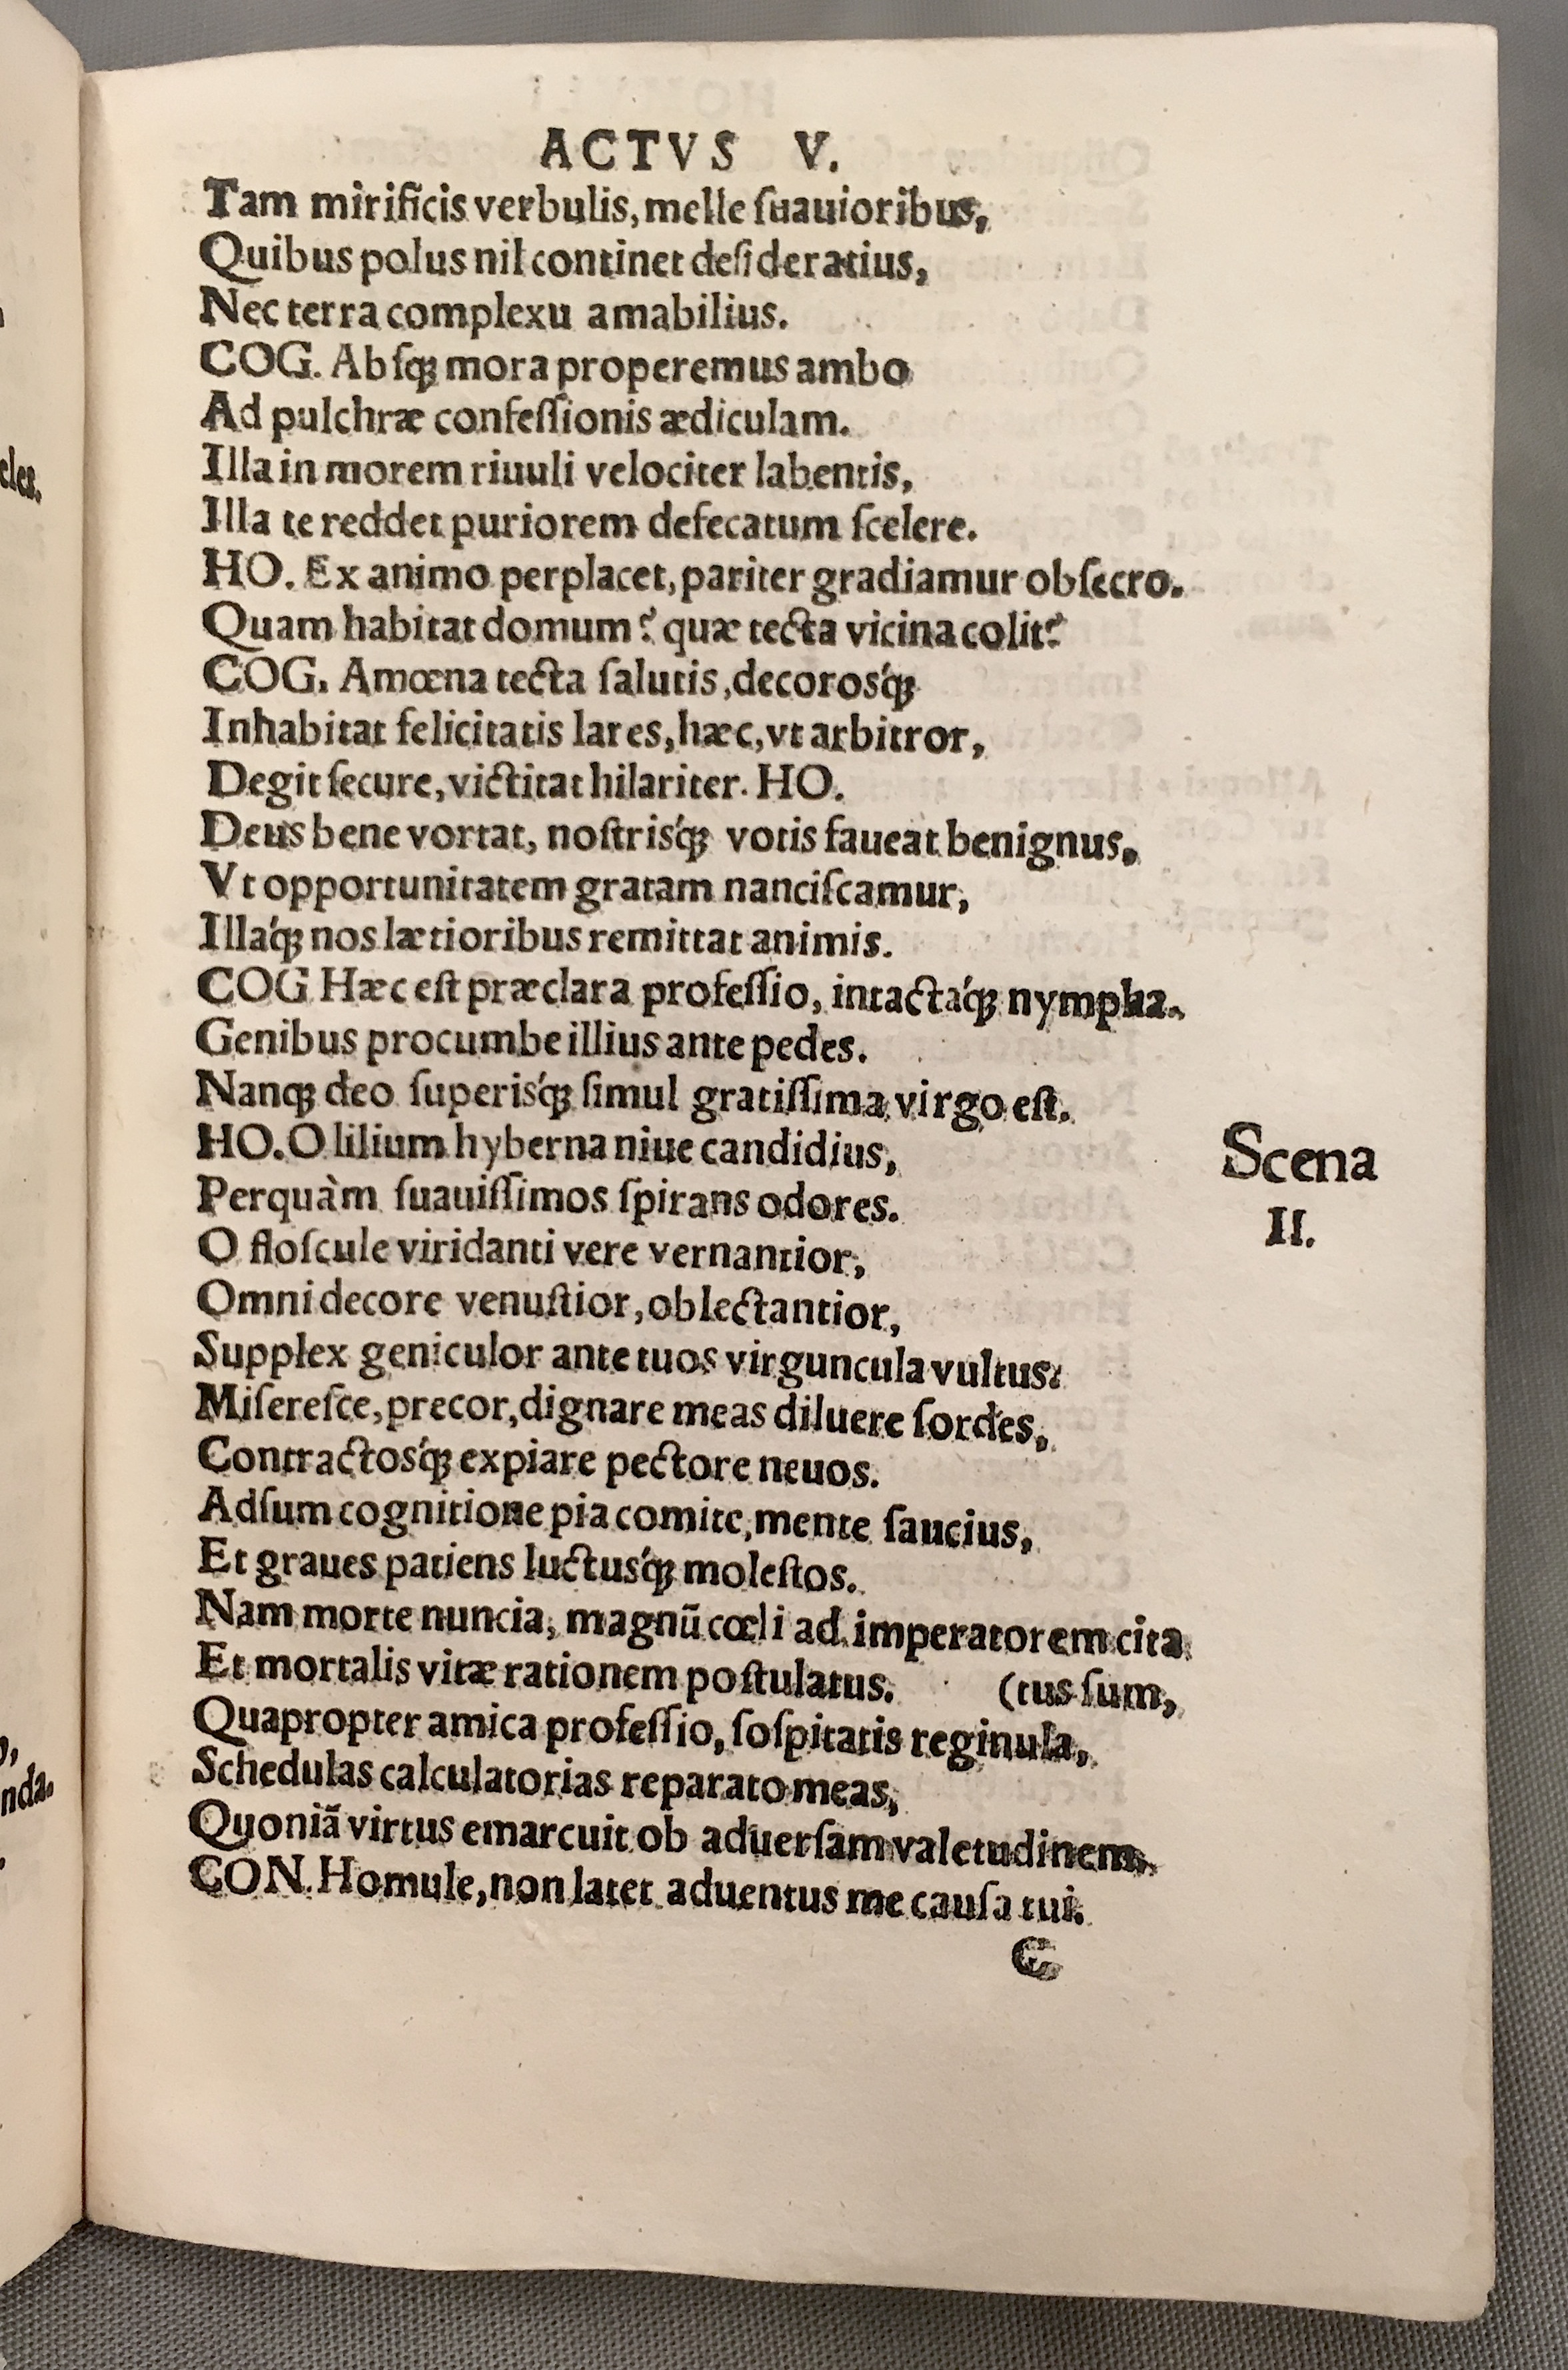 ACTVS V.
Tam mirificis verbulis, melle ſuauioribus,
Quibus polus nil continet deſideratius,
Nec terra complexu amabilius.
COG. Abſqꝫ mora properemus ambo
Ad pulchræ confeſſionis ædiculam.
Illa in morem riuuli velociter labentis,
Illa te reddet puriorem defecatum ſcelere.
HO. Ex animo perplacet, pariter gradiamur obſecro.
Quam habitat domum? quæ tecta vicina colit?
COG. Amœna tecta ſalutis, decorosq́ꝫ
Inhabitat felicitatis lares, hæc, vt arbitror,
Degit ſecure, victitat hilariter. HO.
Deus bene vortat, noſtrisq́ꝫ votis faueat benignus,
Vt opportunitatem gratam nanciſcamur,
Illaq́ꝫ nos lætioribus remittat animis.
COG Hæc eſt præclara profeſſio, intactaq́ꝫ nympha.
Genibus procumbe illius ante pedes.
Nanqꝫ deo ſuperisq́ꝫ ſimul gratiſſima virgo eſt.
HO. O lilium hyberna niue candidius,
Scena
II.
Perquàm ſuauiſſimos ſpirans odores.
O floſcule viridanti vere vernantior,
Omni decore venuſtior, oblectantior,
Supplex geniculor ante tuos virguncula vultus:
Miſereſce, precor, dignare meas diluere ſordes,
Contractosq́ꝫ expiare pectore neuos.
Adſum cognitione pia comite, mente ſaucius,
Et graues patiens luctusq́ꝫ moleſtos.
Nam morte nuncia, magnū cœli ad imperatorem cita
Et mortalis vitæ rationem poſtulatus. (tus ſum,
Quapropter amica profeſſio, ſoſpitatis reginula,
Schedulas calculatorias reparato meas,
Quoniā virtus emarcuit ob aduerſam valetudinem.
CON. Homule, non latet aduentus me cauſa tui.
C